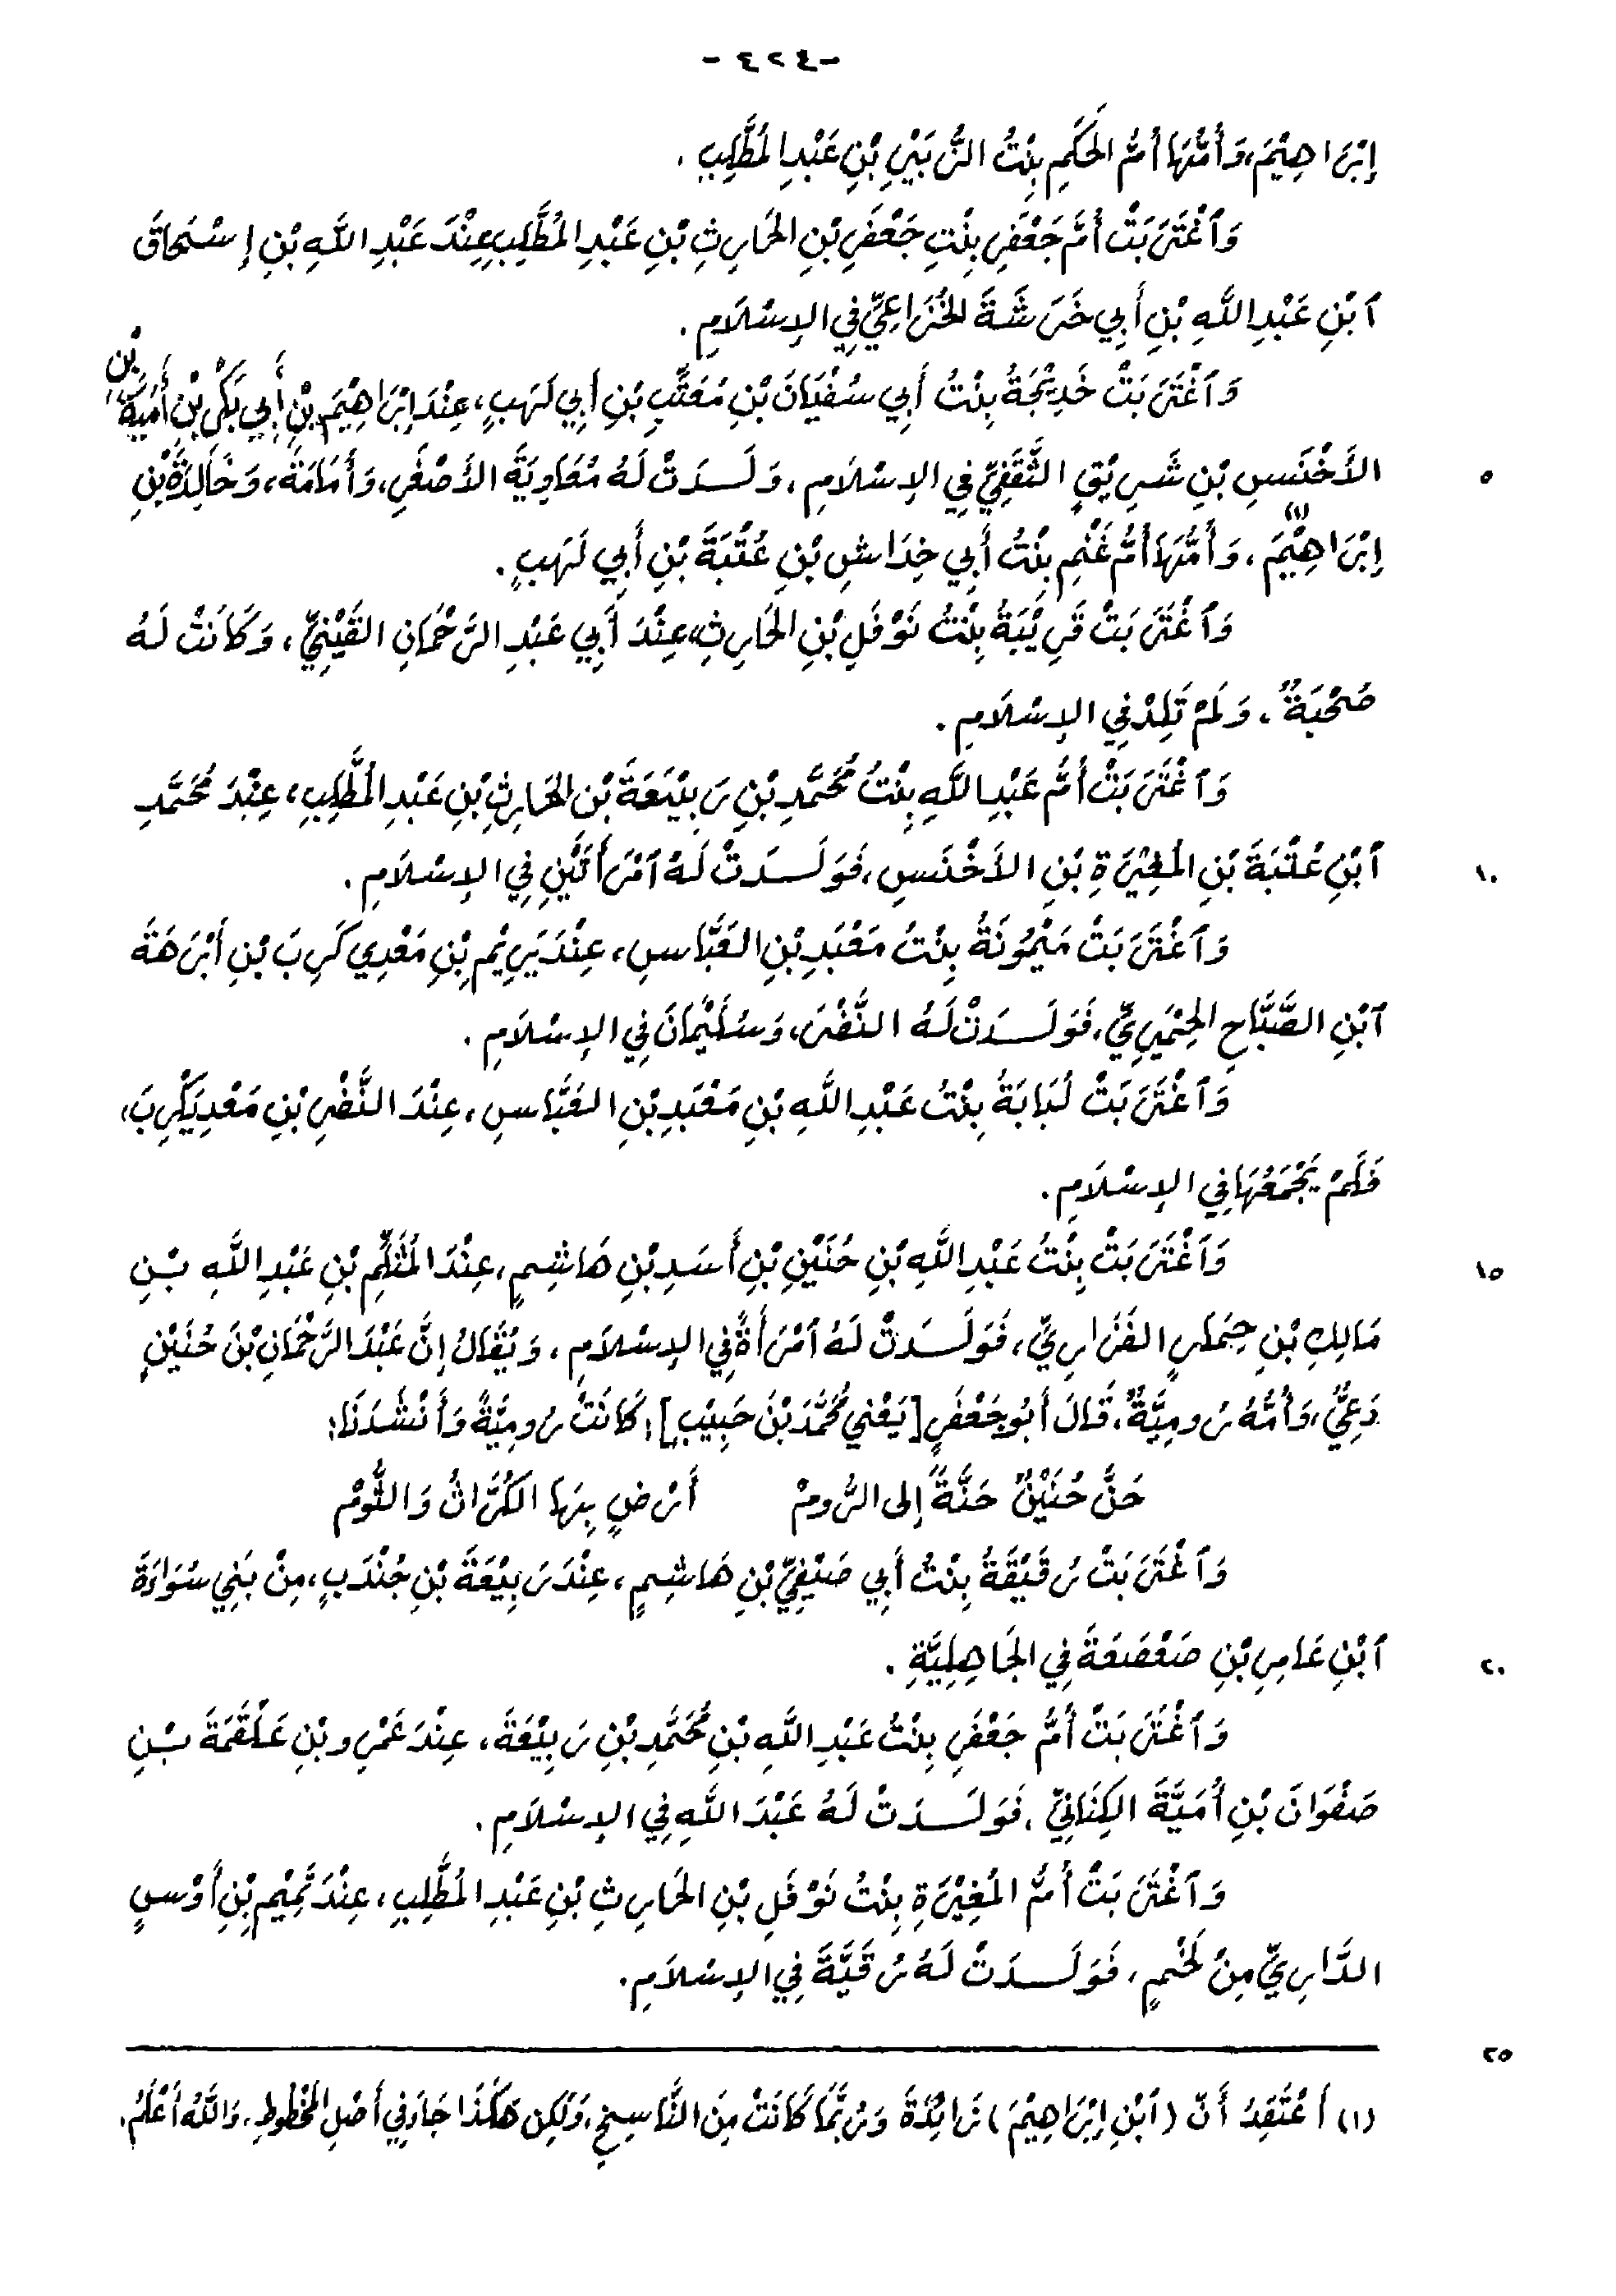 - ٤٢٤ -
إِبْرَاهِيْمَ، وَأُمُّهَا أُمُّ الحَكَمِ بِنْتُ الزُّبَيْرِ بْنِ عَبْدِ المُطَّلِبِ .
وَٱغْتَرَبَتْ أُمُّ جَعْفَرِ بِنْتِ جَعْفَرِ بْنِ الحَارِثِ بْنِ عَبْدِ المُطَّلِبِ عِنْدَ عَبْدِ اللَّهِ بْنِ إِسْحَاقَ
ٱبْنِ عَبْدِ اللَّهِ بْنِ أَبِي خَرَشَةَ الخُزَاعِيِّ فِي الإِسْلَامِ .
وَٱغْتَرَبَتْ خَدِيْجَةُ بِنْتُ أَبِي سُفْيَانَ بْنِ مُعَتِّبِ بْنِ أَبِي لَهَبٍ، عِنْدَ إِبْرَاهِيْمَ بْنِ أَبِي بَكْرِ بْنِ أُمَيَّةَ بْنِ
٥ الأَخْنَسِ بْنِ شَرِيْقٍ الثَّقَفِيِّ فِي الإِسْلَامِ، وَلَدَتْ لَهُ مُعَاوِيَةَ الأَصْغَرَ، وَأُمَامَةَ، وَخَالِدَةَ بْنِ
إِبْرَاهِيْمَ (١)، وَأُمُّهَا أُمُّ غَنْمِ بِنْتُ أَبِي خِدَاشِ بْنِ عُتْبَةَ بْنِ أَبِي لَهَبٍ .
وَٱغْتَرَبَتْ قَرِيْبَةُ بِنْتُ نَوْفَلِ بْنِ الحَارِثِ، عِنْدَ أَبِي عَبْدِ الرَّحْمَانِ القَيْنِيِّ، وَكَانَتْ لَهُ
صُحْبَةٌ، وَلَمْ تَلِدْ فِي الإِسْلَامِ .
وَٱغْتَرَبَتْ أُمُّ عَبْدِ اللَّهِ بِنْتُ مُحَمَّدِ بْنِ رَبِيْعَةَ بْنِ الحَارِثِ بْنِ عَبْدِ المُطَّلِبِ، عِنْدَ مُحَمَّدِ
١٠ ٱبْنِ عُتْبَةَ بْنِ المُغِيْرَةِ بْنِ الأَخْنَسِ، فَوَلَدَتْ لَهُ ٱمْرَأَتَيْنِ فِي الإِسْلَامِ .
وَٱغْتَرَبَتْ مَيْمُونَةُ بِنْتُ مَعْبَدِ بْنِ العَبَّاسِ، عِنْدَ يَرِيْمِ بْنِ مَعْدِي كَرِبَ بْنِ أَبْرَهَةَ
ٱبْنِ الصَّبَّاحِ الحِمْيَرِيِّ، فَوَلَدَتْ لَهُ النَّضْرَ، وَسُلَيْمَانَ فِي الإِسْلَامِ .
وَٱغْتَرَبَتْ لُبَابَةُ بِنْتُ عَبْدِ اللَّهِ بْنِ مَعْبَدِ بْنِ العَبَّاسِ، عِنْدَ النَّضْرِ بْنِ مَعْدِيَكْرِبَ،
فَلَمْ يَجْمَعْهَا فِي الإِسْلَامِ .
١٥ وَٱغْتَرَبَتْ بِنْتُ عَبْدِ اللَّهِ بْنِ حُنَيْنِ بْنِ أَسَدِ بْنِ هَاشِمٍ، عِنْدَ المُثَلَّمِ بْنِ عَبْدِ اللَّهِ بْنِ
مَالِكِ بْنِ حِمَارٍ الفَزَارِيِّ، فَوَلَدَتْ لَهُ ٱمْرَأَةً فِي الإِسْلَامِ، وَيُقَالُ إِنَّ عَبْدَ الرَّحْمَانِ بْنَ حُنَيْنٍ
دَعِيٌّ، وَأُمُّهُ رُومِيَّةٌ، قَالَ أَبُو جَعْفَرٍ [يَعْنِي مُحَمَّدَ بْنَ حَبِيْبٍ]: كَانَتْ رُومِيَّةً وَأَنْشَدَنَا:
حَنَّ حُنَيْنٌ حَنَّةً إِلى الرُّومْ أَرْضٍ بِهَا الكُرَّاثُ وَالثُّومْ
وَٱغْتَرَبَتْ رُقَيْقَةُ بِنْتُ أَبِي صَيْفِيِّ بْنِ هَاشِمٍ، عِنْدَ رَبِيْعَةَ بْنِ جُنْدَبٍ، مِنْ بَنِي سُوَاءَةَ
٢٠ ٱبْنِ عَامِرِ بْنِ صَعْصَعَةَ فِي الجَاهِلِيَّةِ .
وَٱغْتَرَبَتْ أُمُّ جَعْفَرِ بِنْتُ عَبْدِ اللَّهِ بْنِ مُحَمَّدِ بْنِ رَبِيْعَةَ، عِنْدَ عَمْرِو بْنِ عَلْقَمَةَ بْنِ
صَفْوَانَ بْنِ أُمَيَّةَ الكِنَانِيِّ، فَوَلَدَتْ لَهُ عَبْدَ اللَّهِ فِي الإِسْلَامِ .
وَٱغْتَرَبَتْ أُمُّ المُغِيْرَةِ بِنْتُ نَوْفَلِ بْنِ الحَارِثِ بْنِ عَبْدِ المُطَّلِبِ، عِنْدَ تَمِيْمِ بْنِ أَوْسٍ
الدَّارِيِّ مِنْ لَخْمٍ، فَوَلَدَتْ لَهُ رُقَيَّةَ فِي الإِسْلَامِ .
٢٥
(١) أَعْتَقِدُ أَنَّ (ٱبْنِ إِبْرَاهِيْمَ) زَائِدَةَ وَرُبَّمَا كَانَتْ مِنَ النَّاسِخِ، وَلَكِن هَكَذَا جَاءَ فِي أَصْلِ المَخْطُوطِ، وَاللَّهُ أَعْلَمُ .